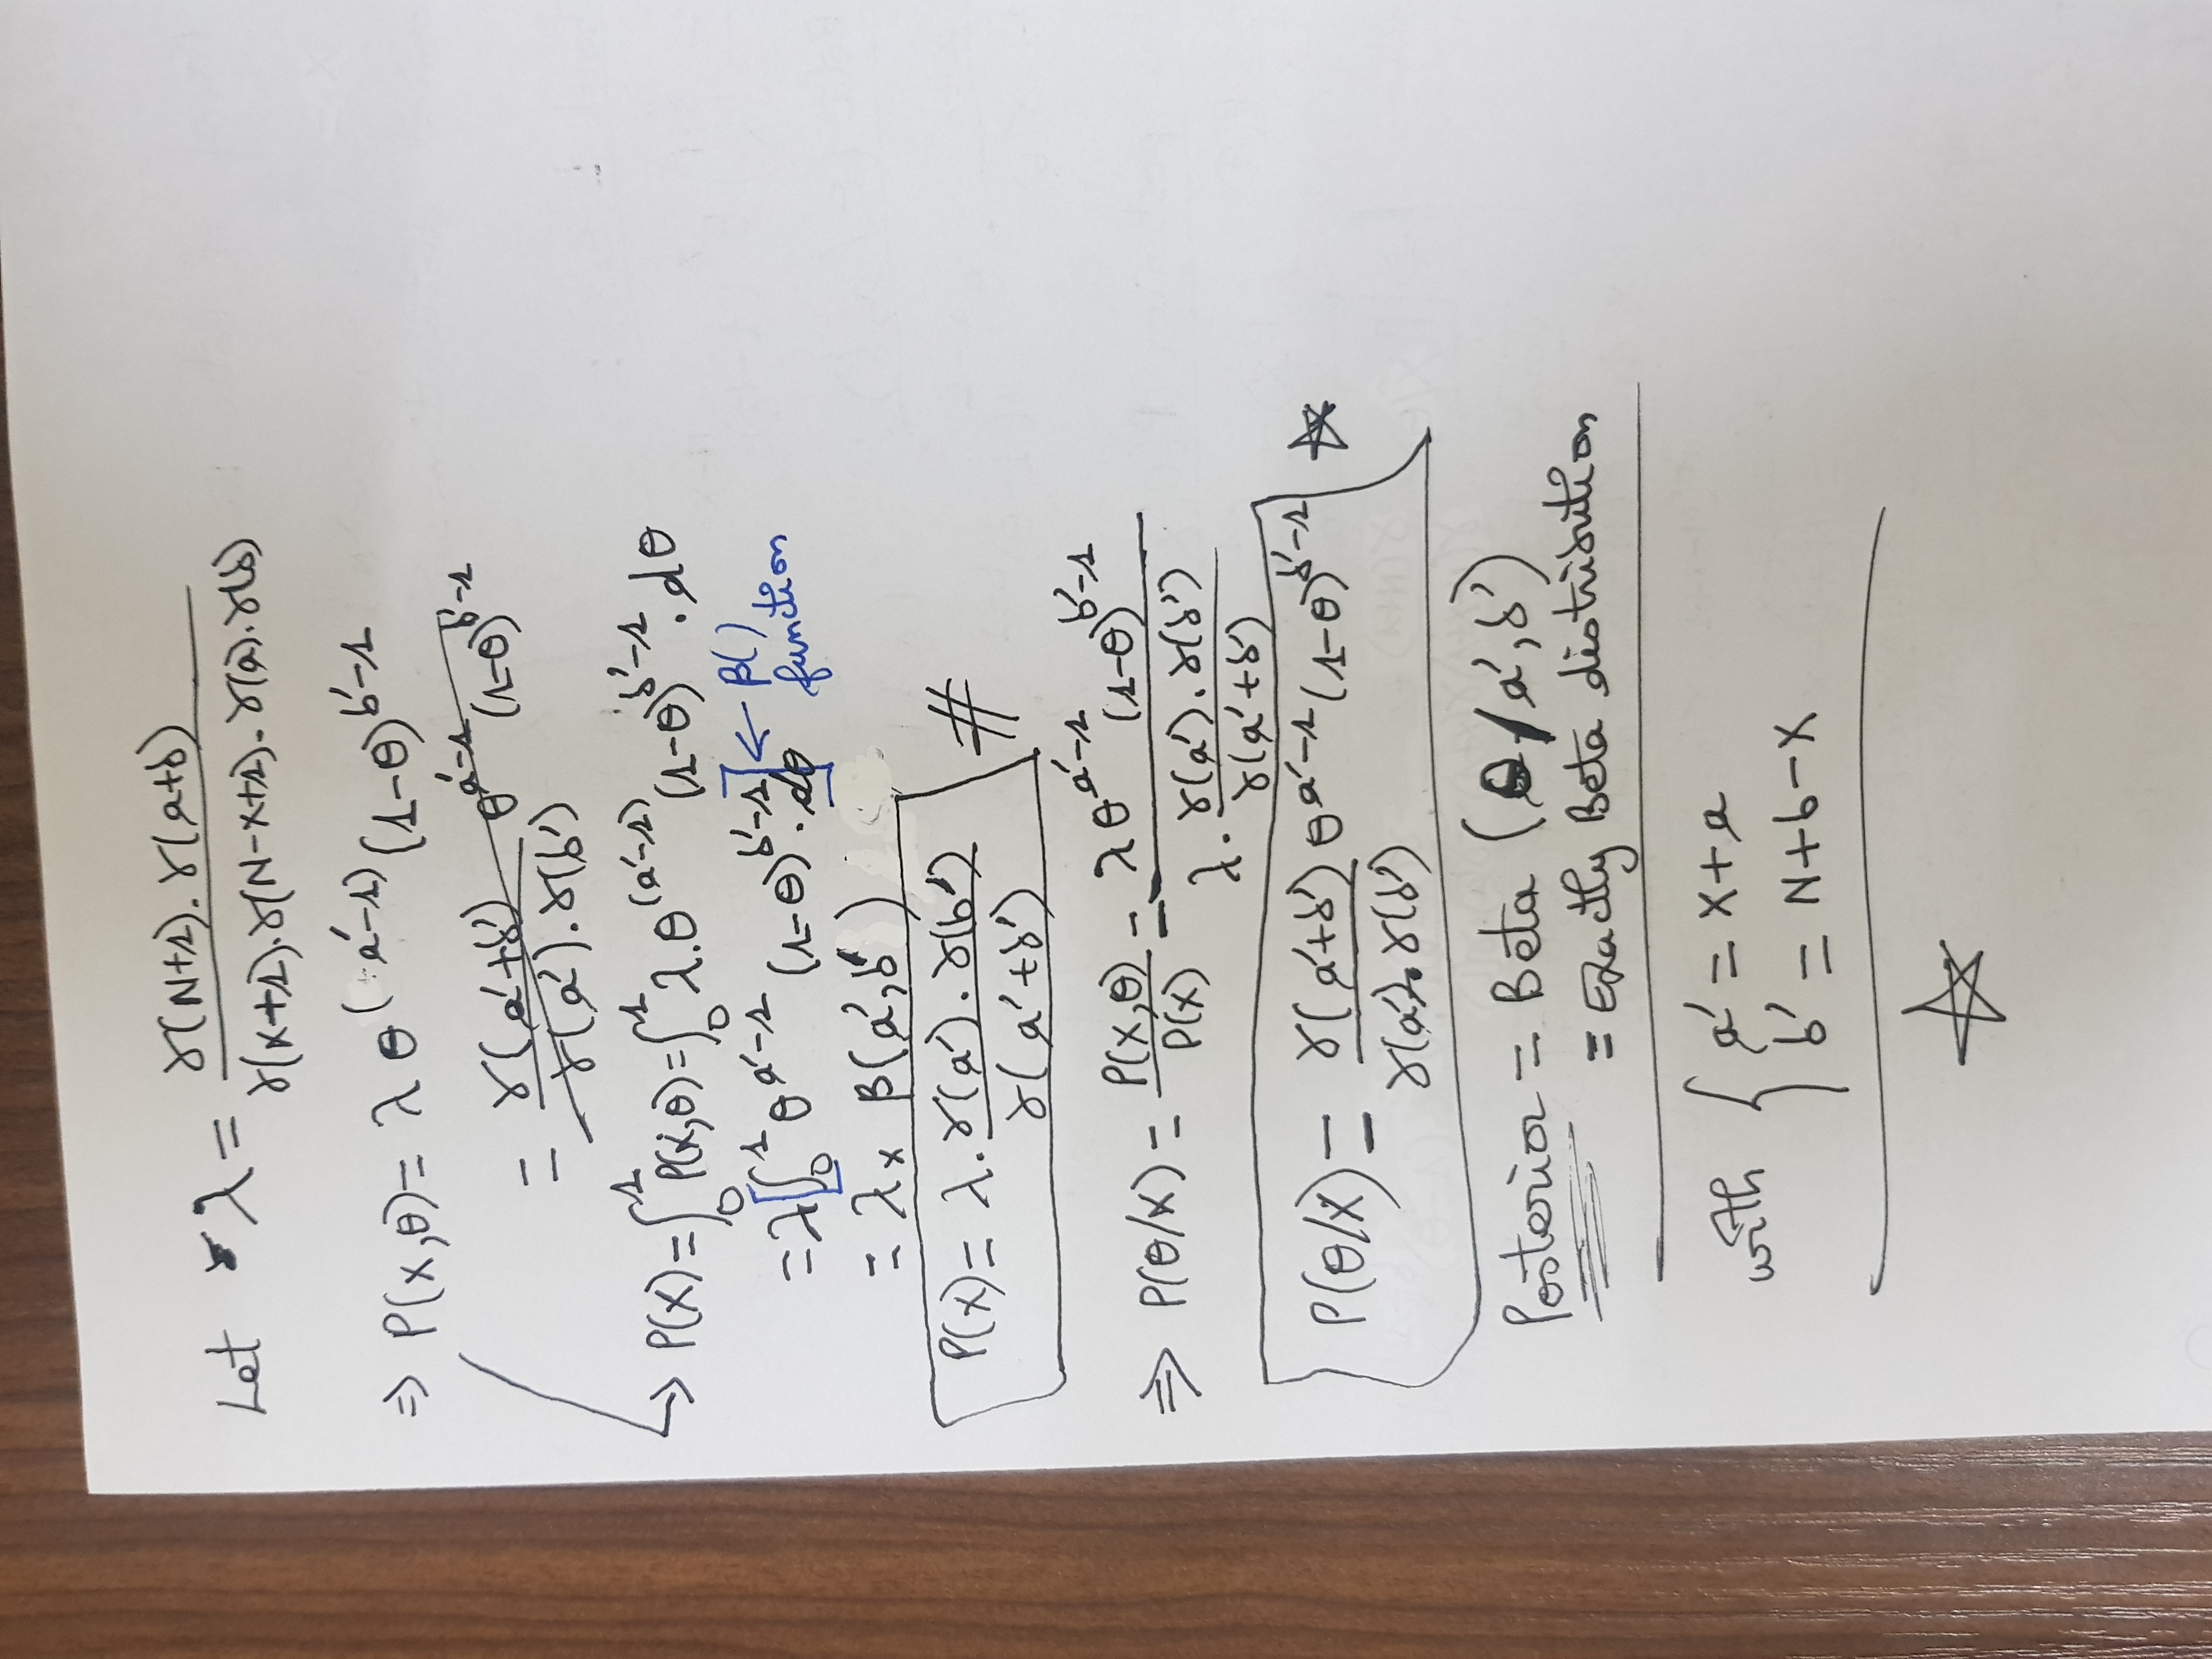 Let λ = γ(N+1).γ(a+b) / γ(x+1).γ(N-x+1).γ(a).γ(b)
⇒ P(x,θ) = λ θ^(a'-1) (1-θ)^b'-1
= γ(a'+b') / γ(a').γ(b') θ^a'-1 (1-θ)^b'-1
↳ P(x) = ∫₀¹ P(x,θ) = ∫₀¹ λ.θ^(a'-1) (1-θ)^b'-1 . dθ
= λ[∫₀¹ θ^a'-1 (1-θ)^b'-1 . dθ] ← β()
function
= λ x β(a',b')
P(x) = λ. γ(a').γ(b') / γ(a'+b') #
⇒ P(θ/x) = P(x,θ) / P(x) = λ θ^a'-1 (1-θ)^b'-1 / λ. γ(a').γ(b') / γ(a'+b')
P(θ/x) = γ(a'+b') / γ(a').γ(b') θ^a'-1 (1-θ)^b'-1 ☆
Posterior = Beta (θ/a',b')
= Exactly Beta distribution
with { a' = x+a
b' = N+b-x
☆